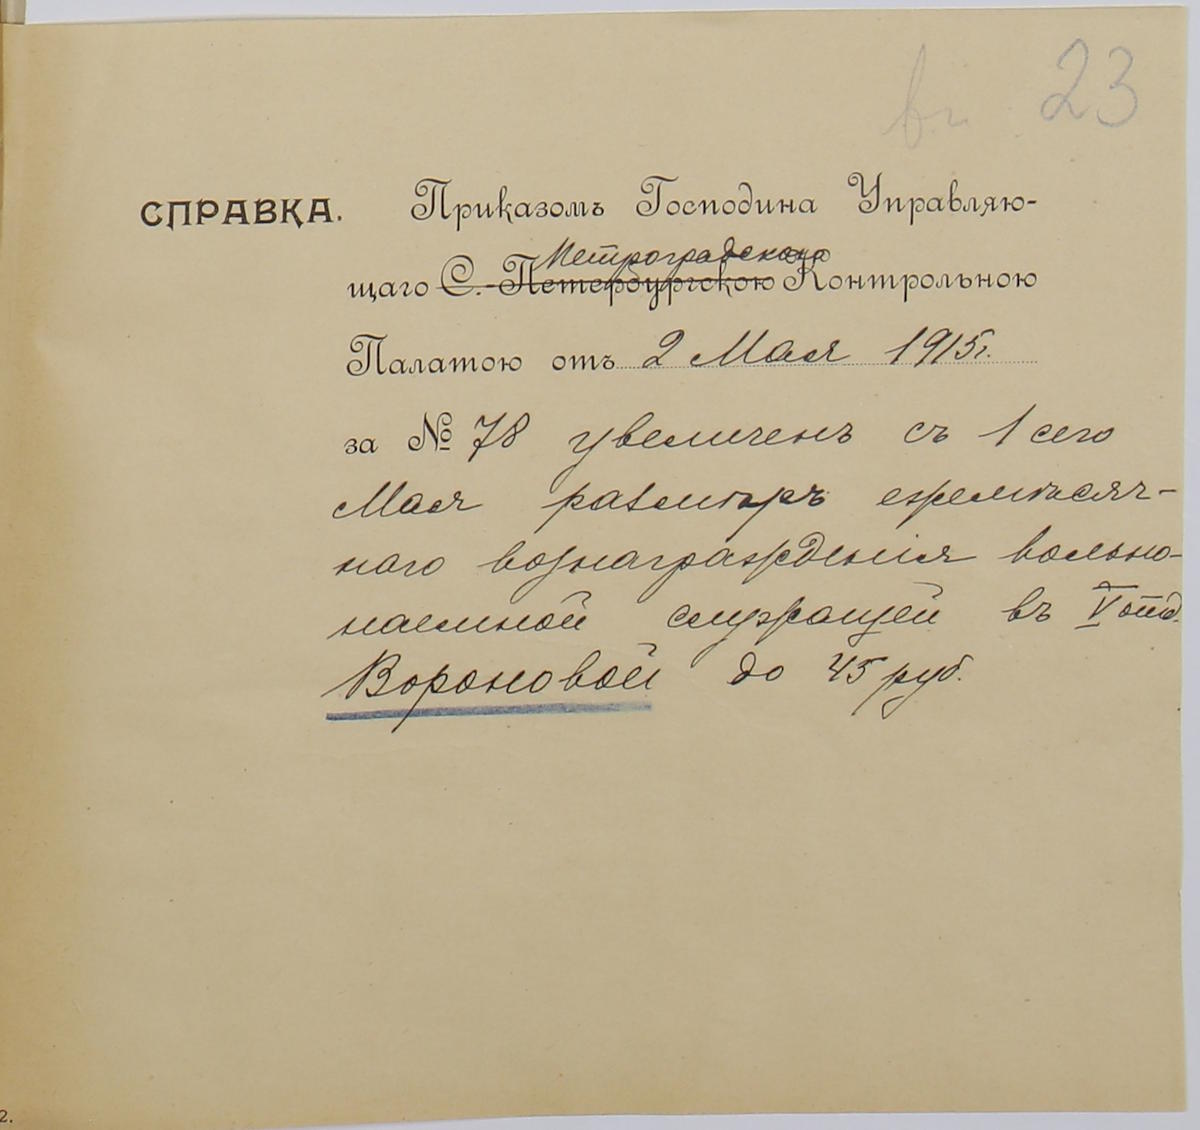 23
СПРАВКА. Приказомъ Господина Управляю-
Петроградскою
щаго С.-Петербургскою Контрольною
Палатою отъ 2 Мая 1915г.
за № 78 увеличенъ съ 1 сего
Мая размѣръ ежемѣсяч-
наго вознагражденія вольно-
наемной служащей въ V отд.
Вороновой до 45 руб.
2.